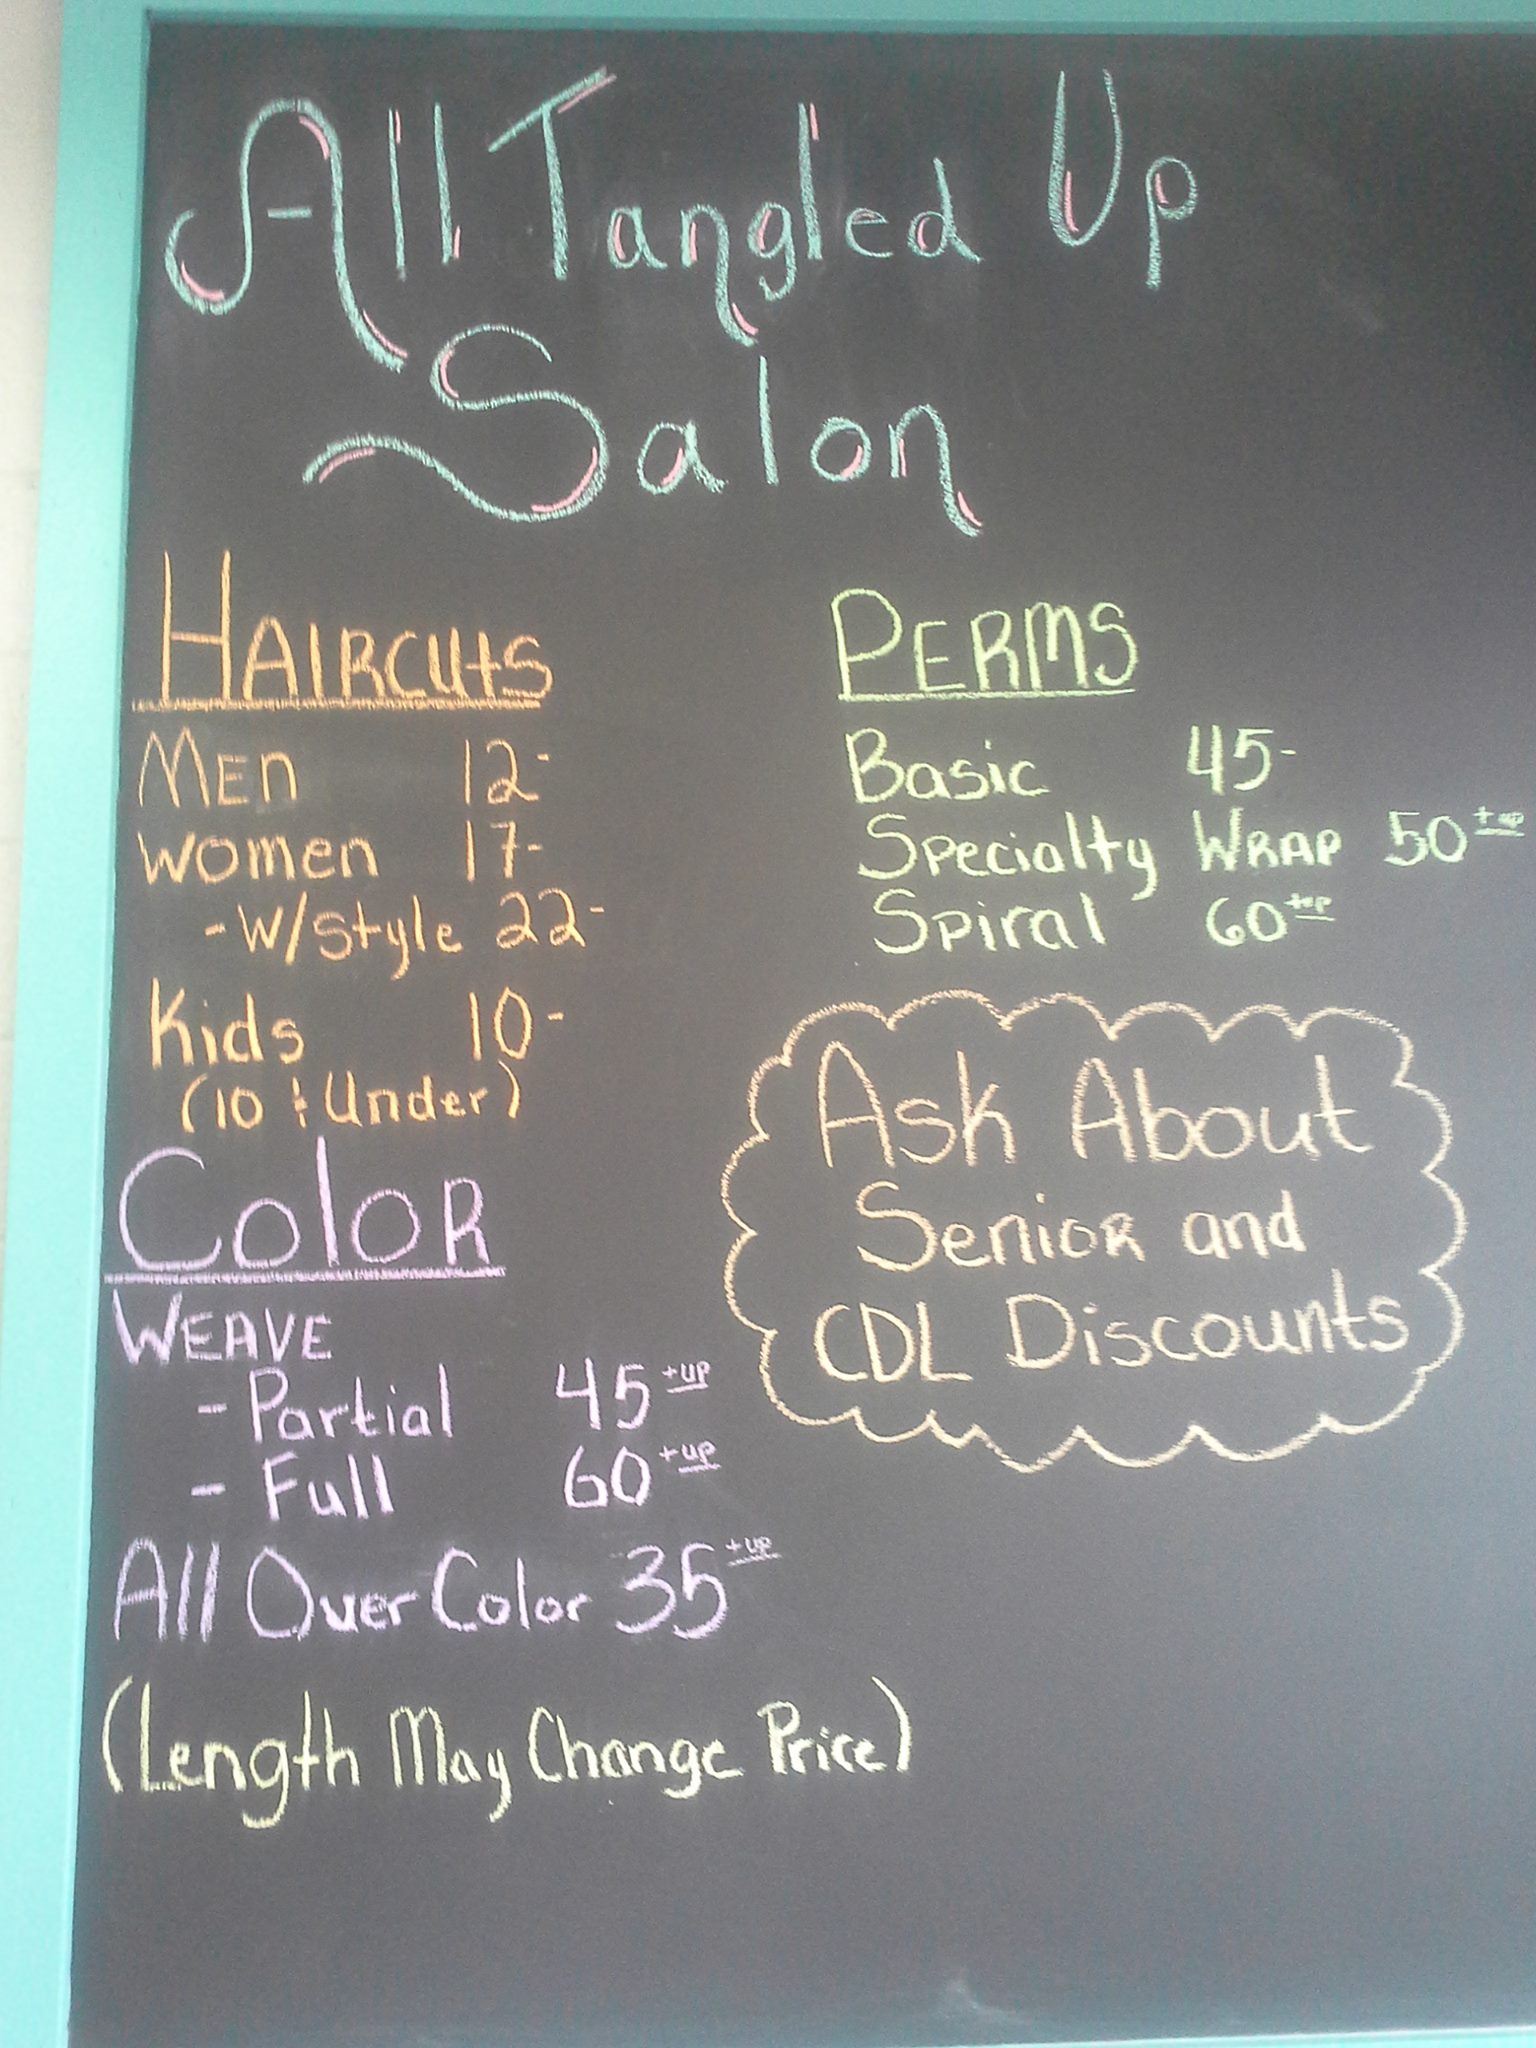 All Tangled Up
Salon
HAIRCUtS
MEn 12-
WOmen 17-
- W/Style 22-
Kids 10-
(10 & Under)
ColoR
WEAVE
- Partial 45 +up
- Full 60 +up
All Over Color 35 +up
(Length May Change Price)
PERMS
Basic 45-
Specialty WRAP 50 +up
Spiral 60 +up
Ask About
SenioR and
CDL Discounts